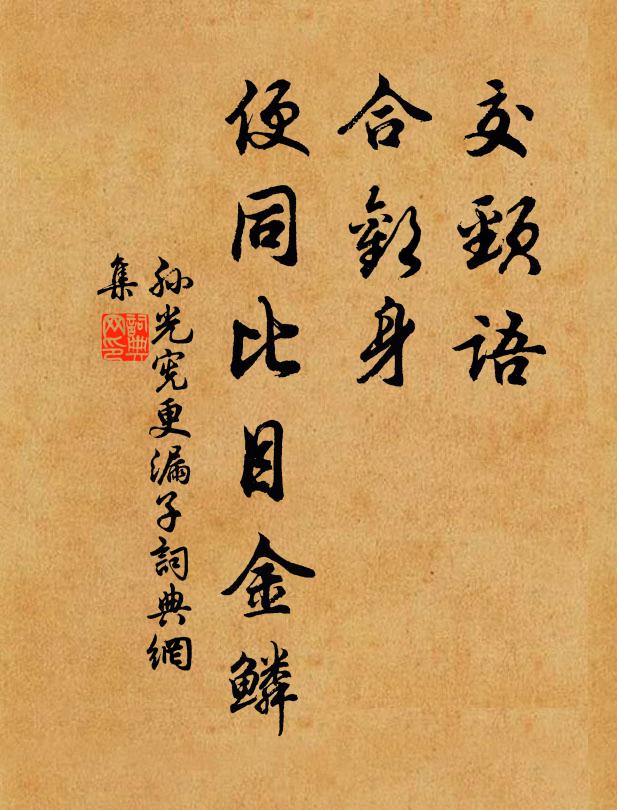 交頸語
合歡身
便同比目金鱗
孙光宪更漏子詞典網
集
詞典网印